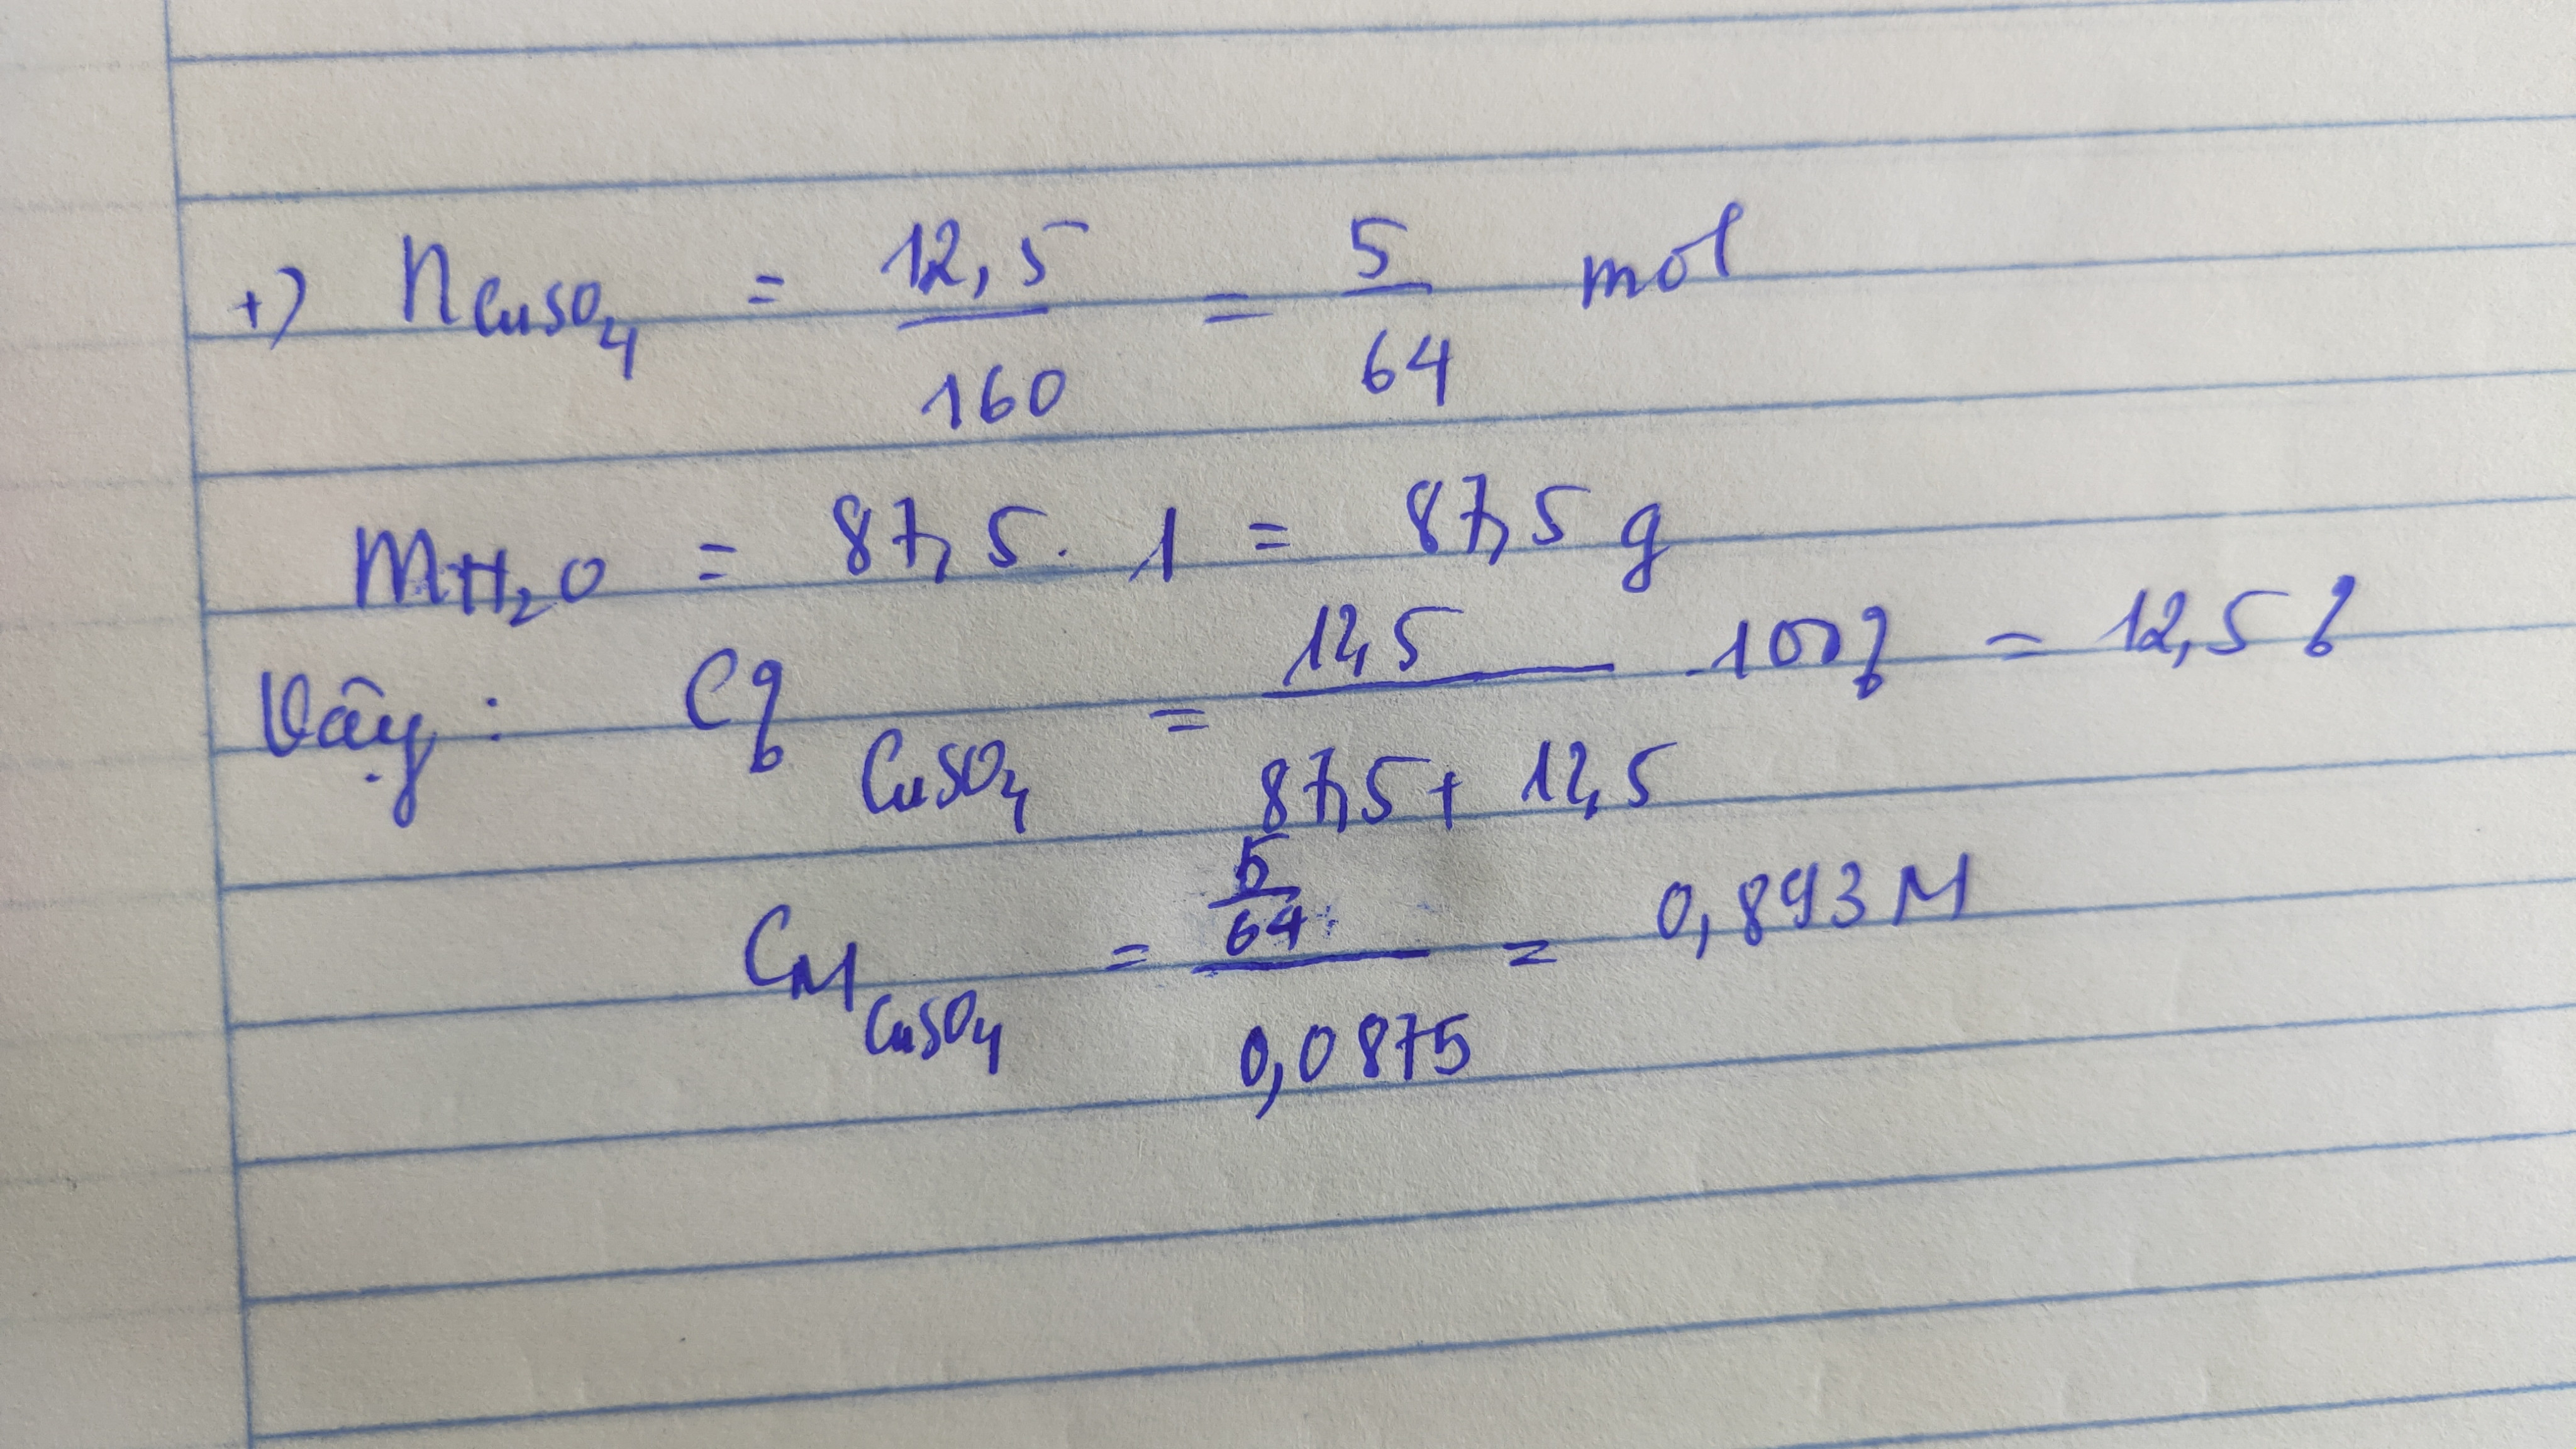 +) nCuSO4 = 12,5/160 = 5/64 mol
mH2O = 87,5 . 1 = 87,5 g
Vậy : C% CuSO4 = 12,5/(87,5 + 12,5) . 100% = 12,5%
CM CuSO4 = (5/64)/0,0875 = 0,893 M